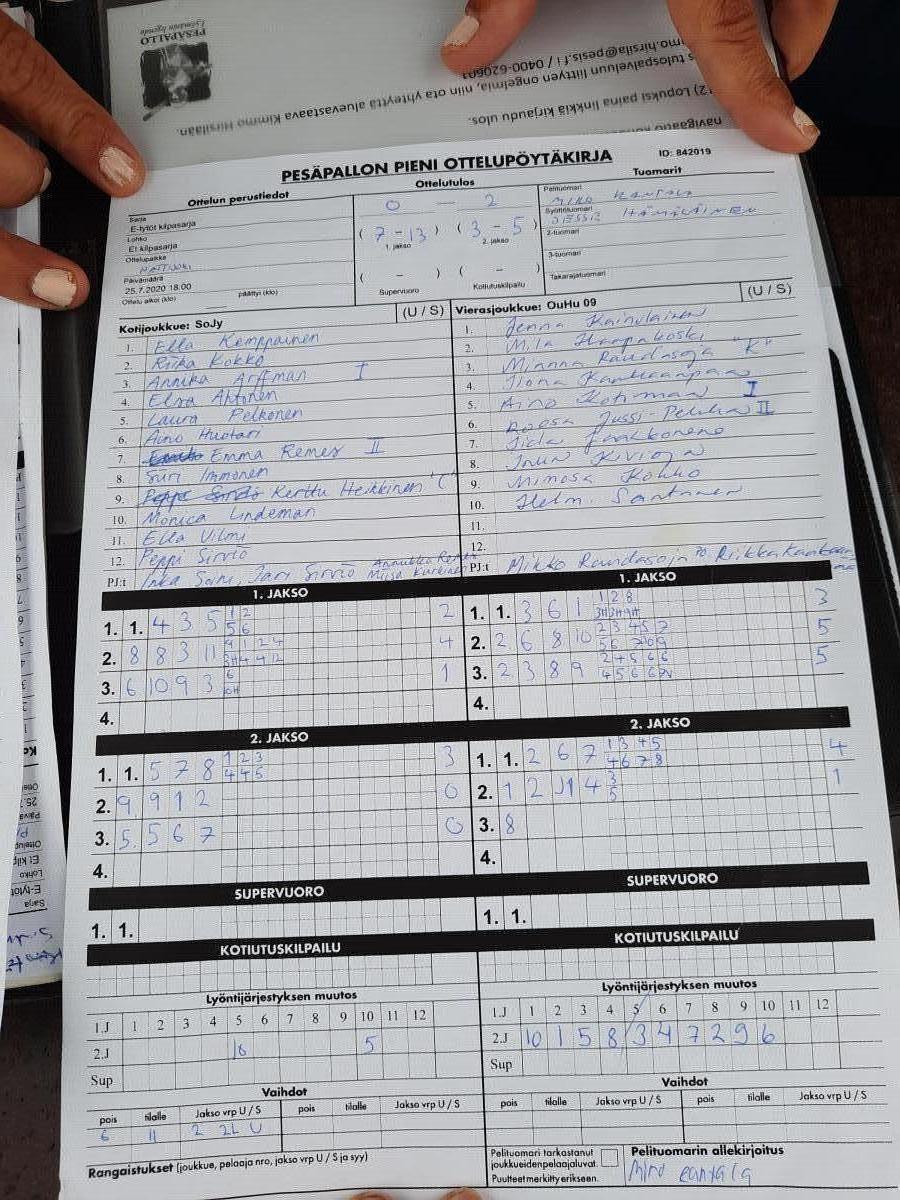 PESÄPALLO
navigaatio
2) Lopuksi paina linkkiä kirjaudu ulos.
s tulospalveluun liittyen ongelmia, niin ota yhteyttä aluevastaava Kimmo Hirsilään.
mo.hirsila@pesis.fi / 0400-620601
PESÄPALLON PIENI OTTELUPÖYTÄKIRJA
ID: 842019
Ottelun perustiedot
Ottelutulos
Tuomarit
Sarja
E-tytöt kilpasarja
Lohko
Et kilpasarja
Ottelupaikka
Päivämäärä
25.7.2020 18.00
Ottelu alkoi (klo) päättyi (klo)
0 - 2
( 7 - 13 ) ( 3 - 5 )
1. jakso 2. jakso
( - ) ( - )
Supervuoro Kotiutuskilpailu
Pelituomari
MIRO RANTALA
Syöttötuomari
JESSE HÄMÄLÄINEN
2-tuomari
3-tuomari
Takarajatuomari
Kotijoukkue: SoJy (U / S)
1. Ella Kemppainen
2. Riika Kokko
3. Annika Arffman I
4. Elsa Ahtonen
5. Laura Pelkonen
6. Aino Huotari
7. Emma Remes II
8. Siiri Immonen
9. Kerttu Heikkinen "C"
10. Monica Lindeman
11. Ella Vilmi
12. Peppi Sirviö
PJ:t Inka Soini, Jari Sirviö
Vierasjoukkue: OuHu 09 (U / S)
1. Jenna Kainulainen
2. Mila Haapakoski
3. Minna Raudasoja "K"
4. Ilona Kankaanpää
5. Aino Kotiman I
6. Roosa Jussi-Pekka II
7. Iida Jaakkonen
8. Inun Kivioja
9. Mimosa Kokko
10. Helmi Santanen
11.
12.
PJ:t Mikko Raudasoja Riikka
1. JAKSO
1. 1. 4 3 5 1 2 2
5 6
2. 8 8 3 11 4
3. 6 10 9 3 6 1
4.
1. JAKSO
1. 1. 3 6 1 1 2 8 3
2. 2 6 8 10 2 3 4 5 7 5
3. 2 3 8 9 2 4 5 6 6 5
4.
2. JAKSO
1. 1. 5 7 8 1 2 3 3
4 4 5
2. 9 9 1 2 0
3. 5 5 6 7 0
4.
2. JAKSO
1. 1. 2 6 7 1 3 4 5 4
4 6 7 8
2. 1 2 1 4 3 1
5
3. 8
4.
SUPERVUORO
1. 1.
SUPERVUORO
1. 1.
KOTIUTUSKILPAILU
KOTIUTUSKILPAILU
Lyöntijärjestyksen muutos
1.J 1 2 3 4 5 6 7 8 9 10 11 12
2.J 10 5
Sup
Lyöntijärjestyksen muutos
1.J 1 2 3 4 5 6 7 8 9 10 11 12
2.J 10 1 5 8 3 4 7 2 9 6
Sup
Vaihdot
pois tilalle Jakso vrp U / S pois tilalle Jakso vrp U / S
6 11 2 2L U
Vaihdot
pois tilalle Jakso vrp U / S pois tilalle Jakso vrp U / S
Rangaistukset (joukkue, pelaaja nro, jakso vrp U / S ja syy)
Pelituomari tarkastanut
joukkueidenpelaajaluvat.
Puutteet merkitty erikseen.
Pelituomarin allekirjoitus
Miro Rantala